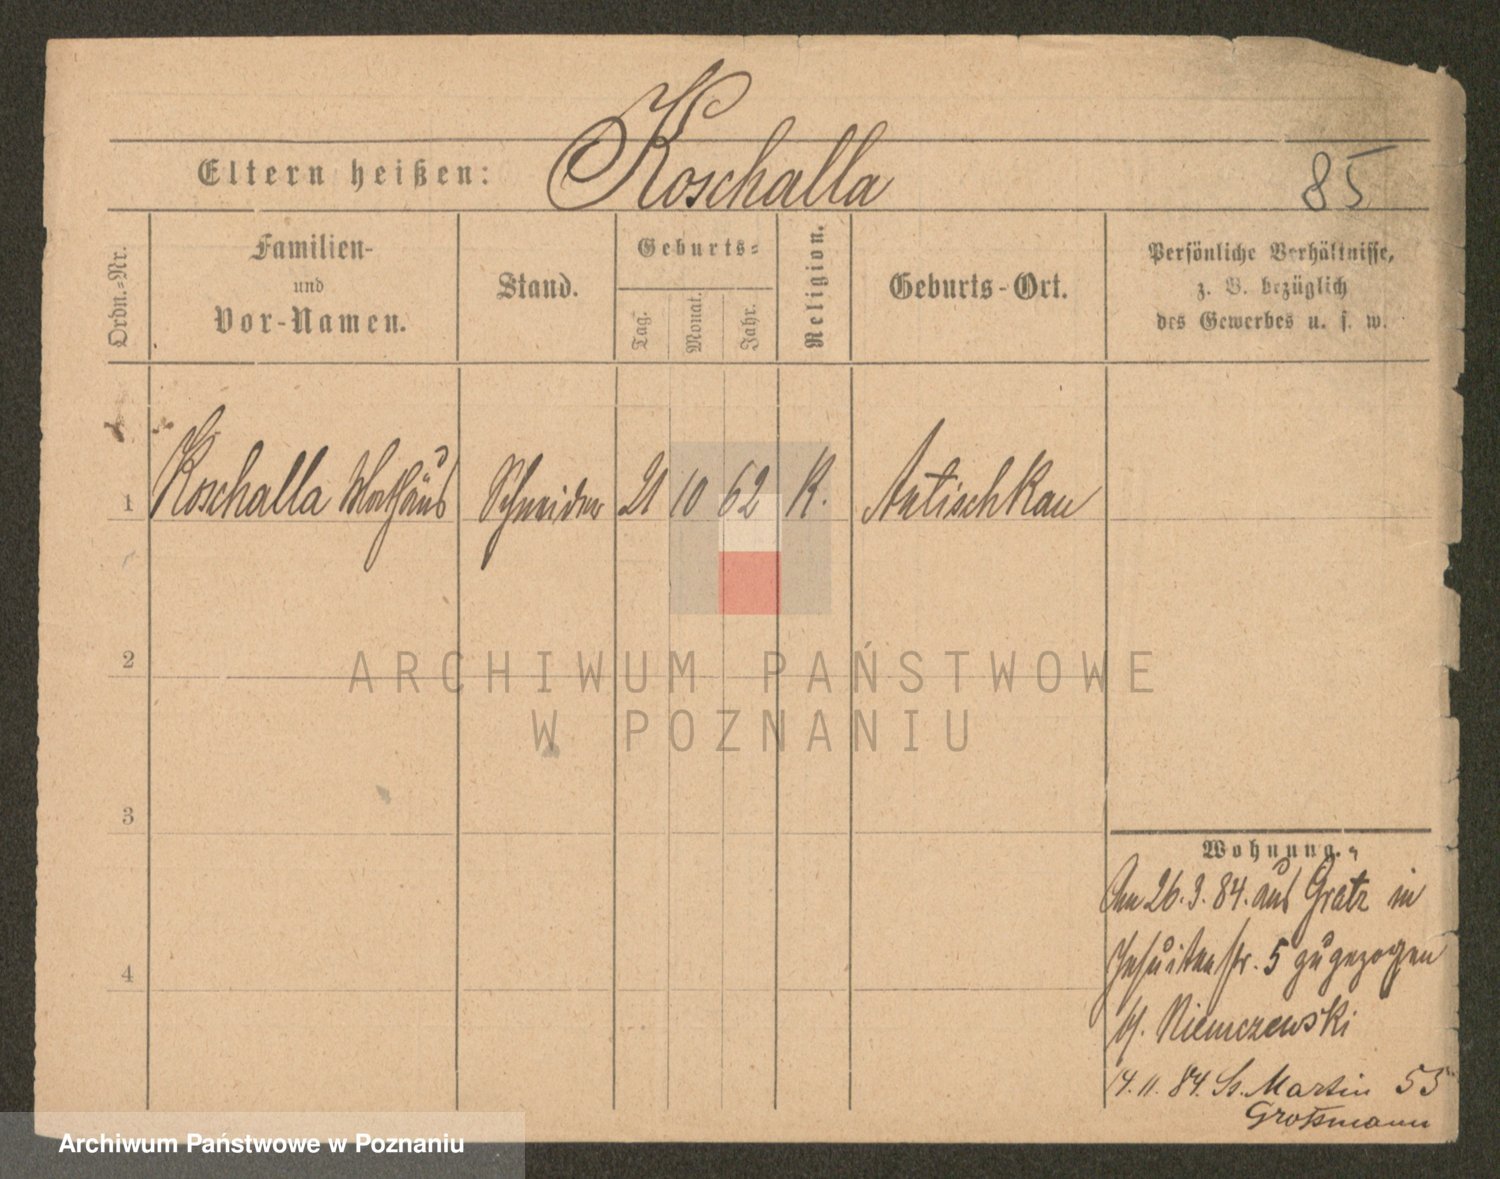 Koschalla
Eltern heißen:
85
Ordn.-Nr.
Familien-
und
Vor-Namen.
Stand.
Geburts-
Tag.
Monat.
Jahr.
Religion.
Geburts-Ort.
Persönliche Verhältnisse,
z. B. bezüglich
des Gewerbes u. s. w.
1 Koschalla Mathäus Schneider 21 10 62 K.
2
3
4
Wohnung.
Am 26.3.84. aus Gratz in
Jesuitenstr. 5 zugezogen
Niemczewski
14.11.84. St. Martin 55
Großmann
ARCHIWUM PAŃSTWOWE
W POZNANIU
Archiwum Państwowe w Poznaniu